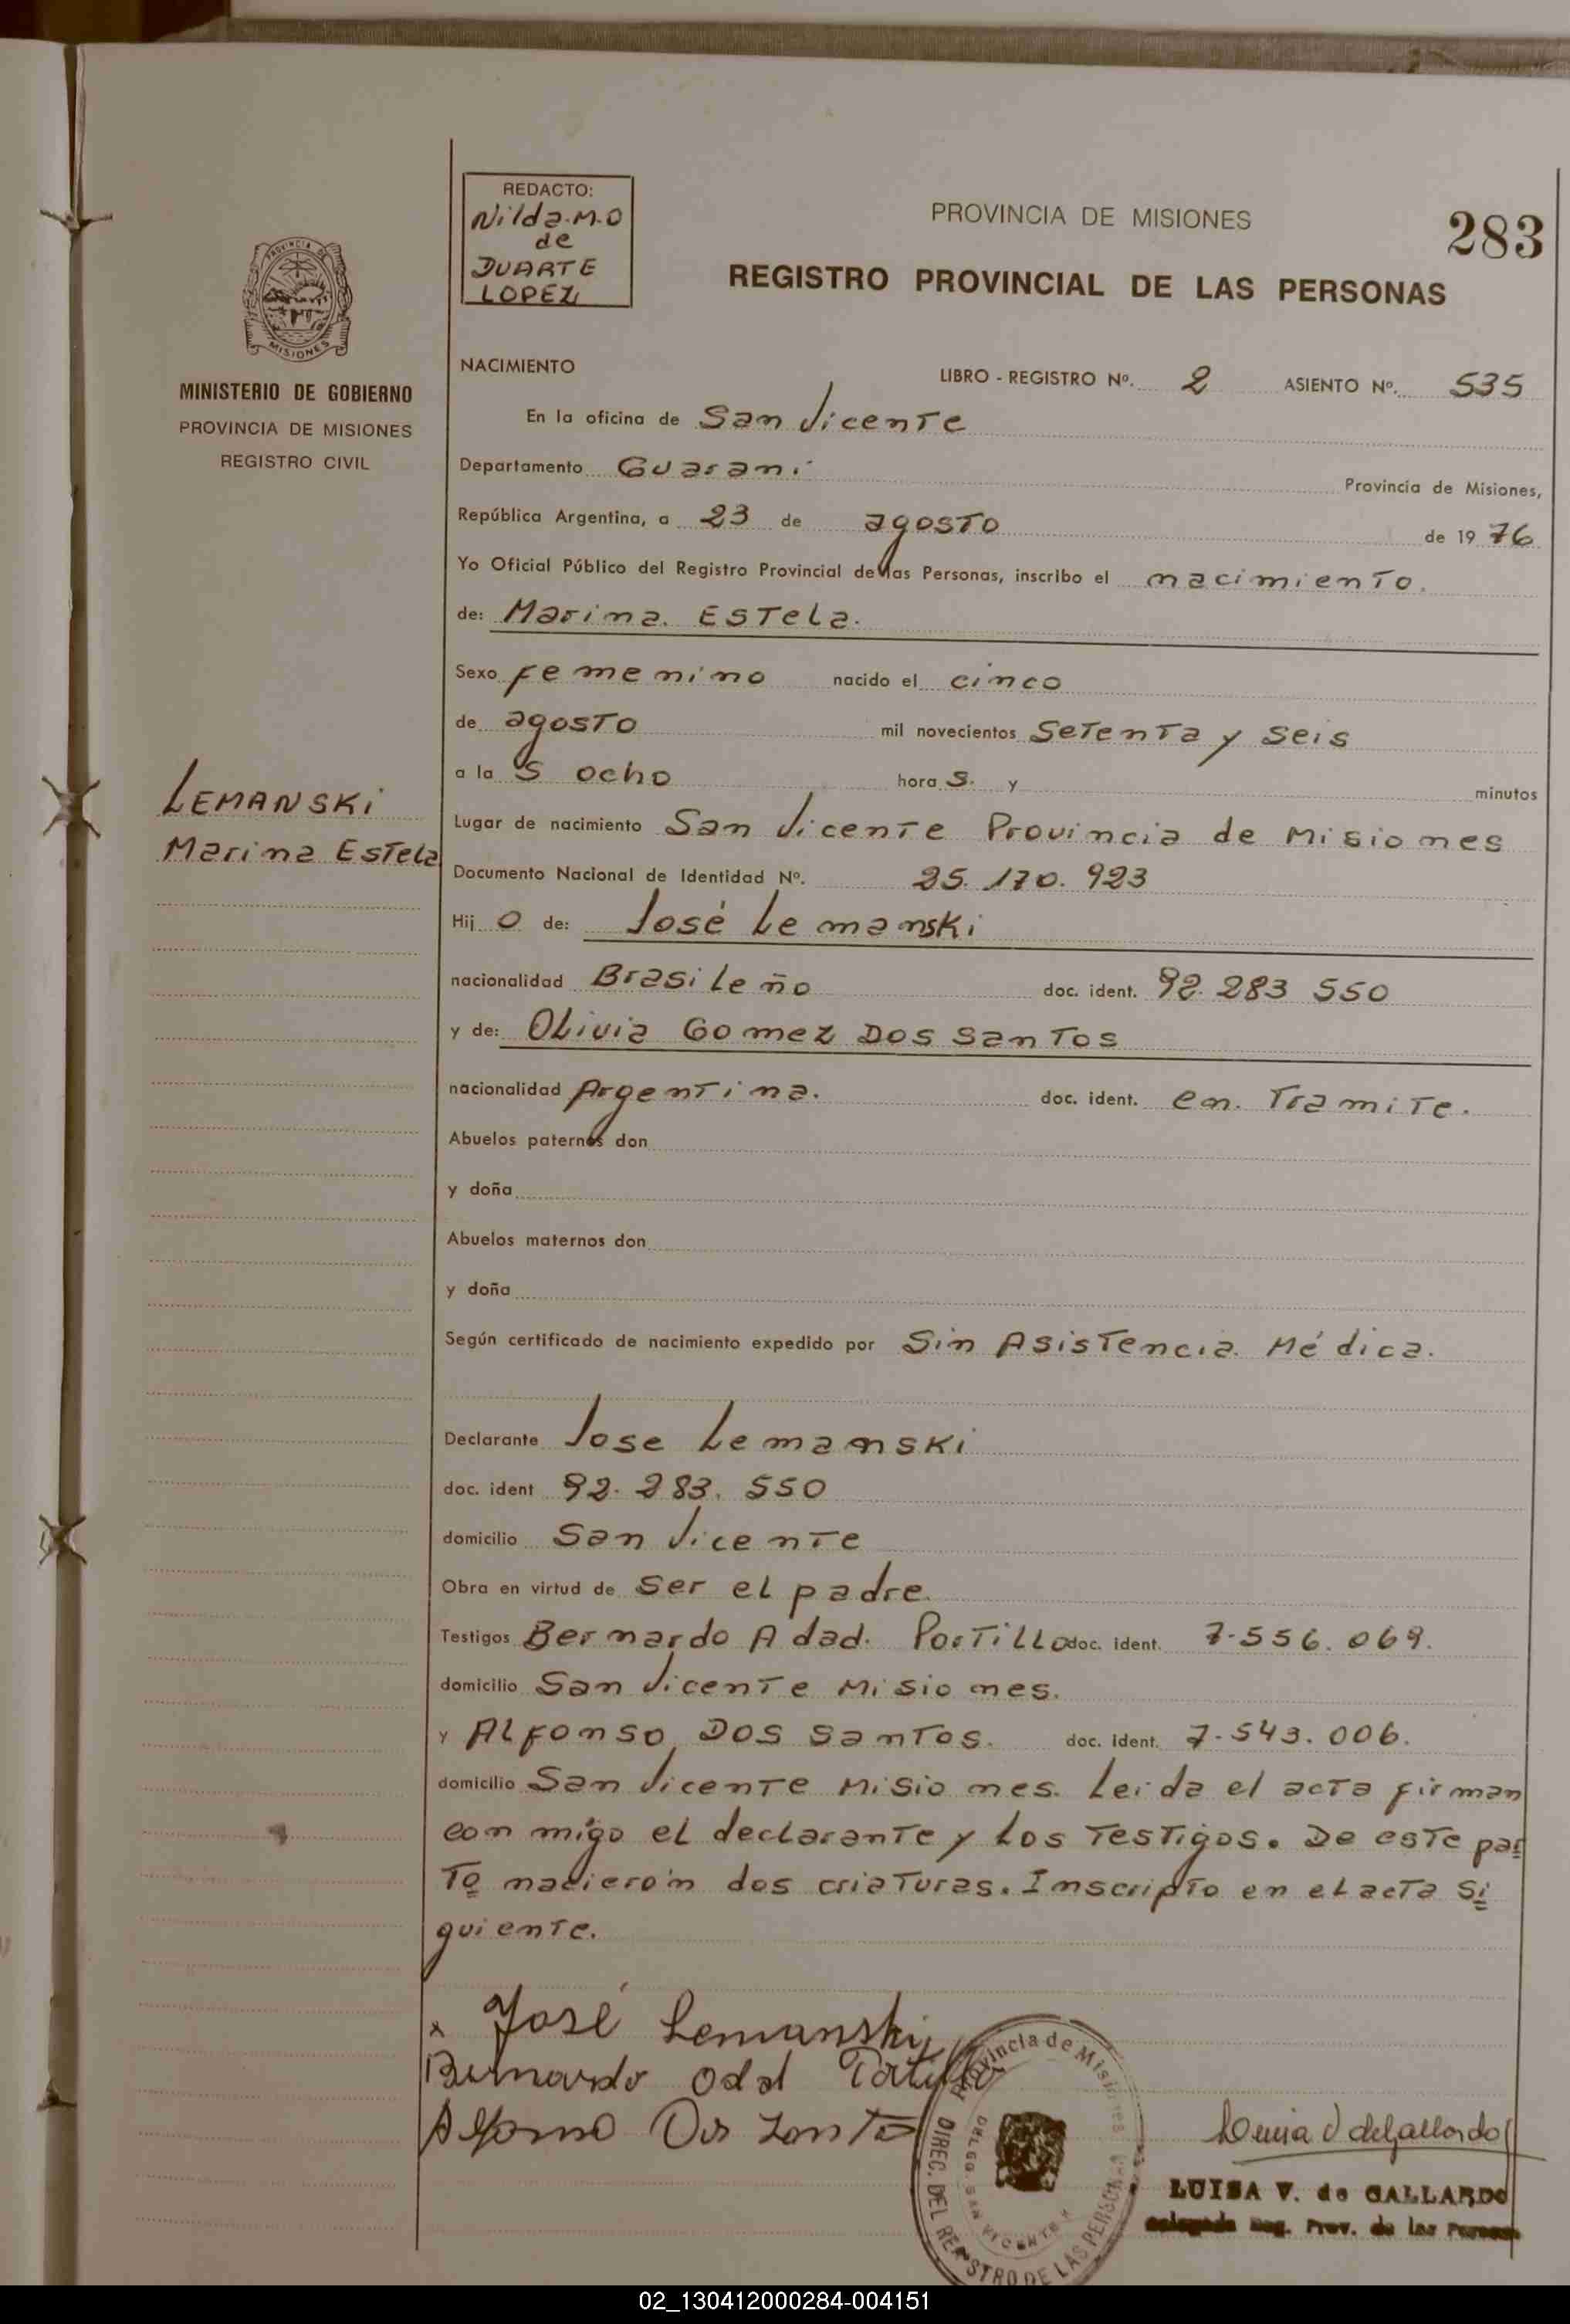 REDACTO:
Nilda.M.O
de
DUARTE
LOPEZ
PROVINCIA DE MISIONES
283
REGISTRO PROVINCIAL DE LAS PERSONAS
PROVINCIA DE
MISIONES
MINISTERIO DE GOBIERNO
PROVINCIA DE MISIONES
REGISTRO CIVIL
NACIMIENTO
LIBRO - REGISTRO Nº. 2 ASIENTO Nº. 535
En la oficina de San Vicente
Departamento Guarani Provincia de Misiones,
República Argentina, a 23 de agosto de 19 76
Yo Oficial Público del Registro Provincial de las Personas, inscribo el nacimiento.
de: Marina. Estela.
Sexo femenino nacido el cinco
de agosto mil novecientos Setenta y seis
a la s ocho hora s. y minutos
LEMANSKI
Marina Estela
Lugar de nacimiento San Vicente Provincia de Misiones
Documento Nacional de Identidad Nº. 25.170.923
Hij o de: José Lemanski
nacionalidad Brasileño doc. ident. 92.283 550
y de: Olivia Gomez Dos Santos
nacionalidad Argentina. doc. ident. en. Tramite.
Abuelos paternos don
y doña
Abuelos maternos don
y doña
Según certificado de nacimiento expedido por Sin Asistencia. Médica.
Declarante Jose Lemanski
doc. ident 92.283.550
domicilio San Vicente
Obra en virtud de ser el padre.
Testigos Bernardo Adad. Portillo doc. ident. 7.556.069.
domicilio San Vicente Misiones.
y Alfonso Dos Santos. doc. ident. 7.543.006.
domicilio San Vicente Misiones. Leida el acta firman
con migo el declarante y los Testigos. De este par
to nacierón dos criaturas. Inscripto en el acta si
guiente.
x José Lemanski
Bernardo Odd Portillo
Alfonso Dos Santos
Provincia de Misiones
DIREC. DEL REGISTRO DE LAS PERSONAS
DELEG. SAN VICENTE
Luisa V de Gallardo
LUISA V. de GALLARDO
Delegada Reg. Prov. de las Personas
02_130412000284-004151